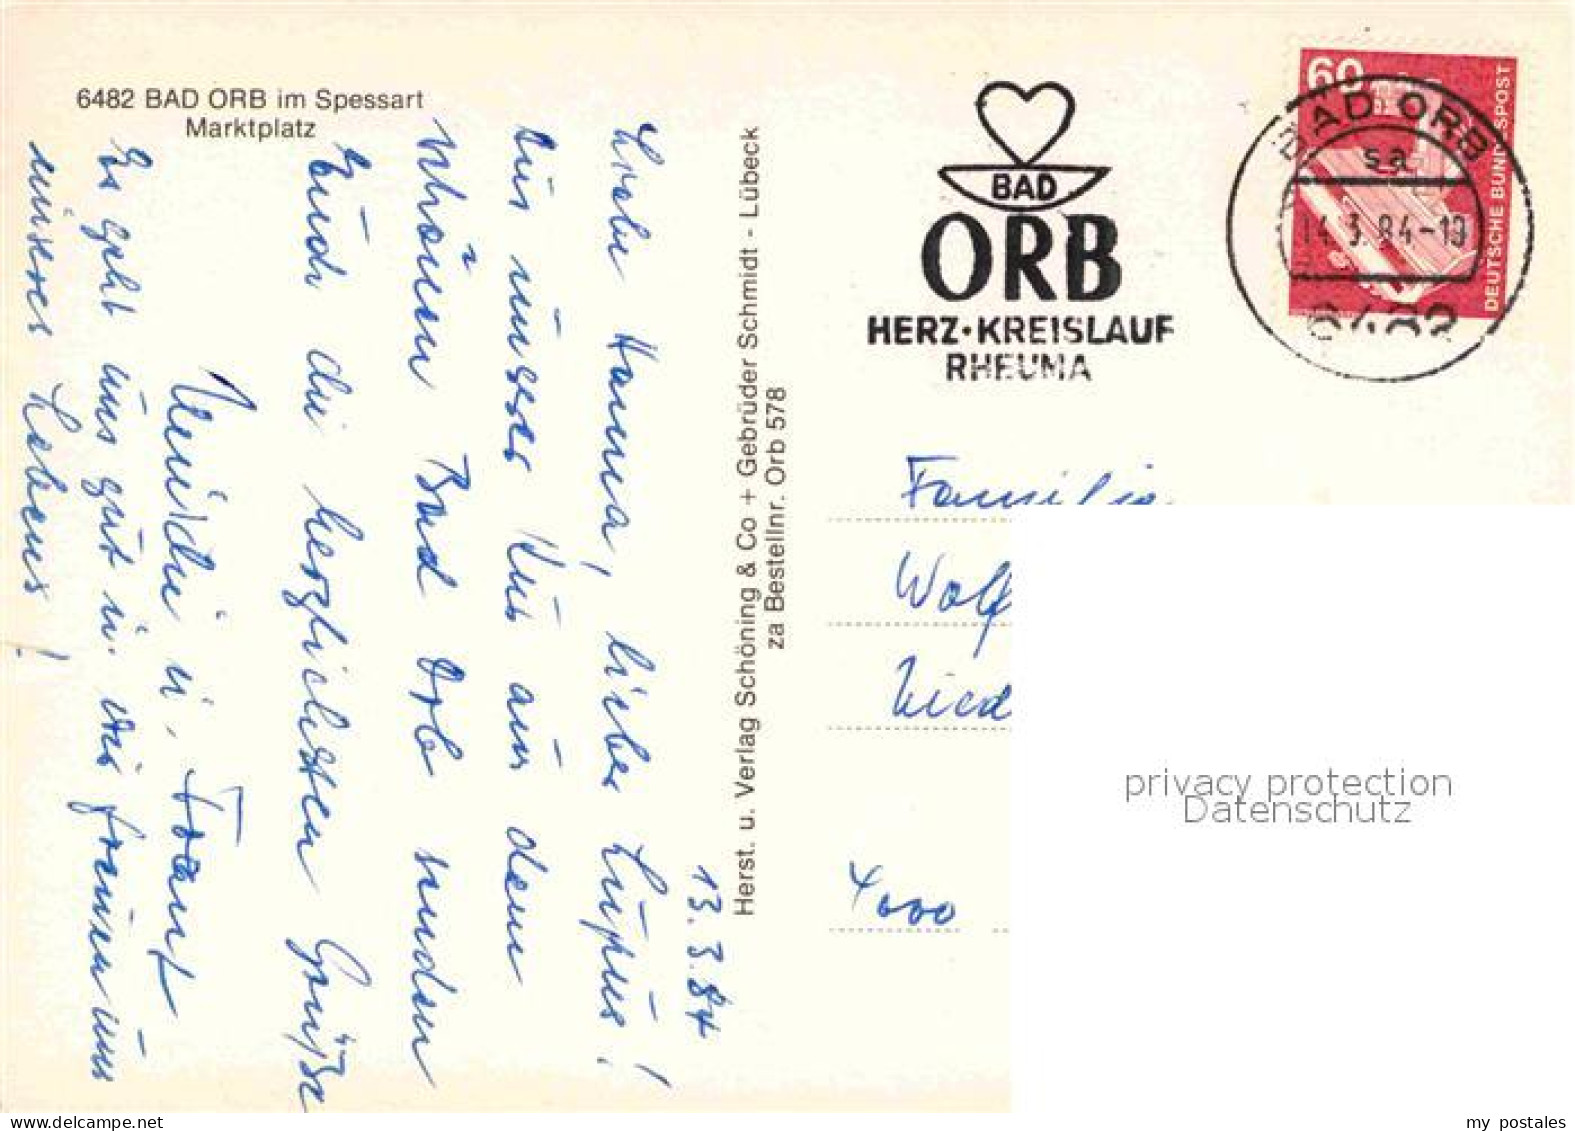 6482 BAD ORB im Spessart
Marktplatz
13.3.84
Liebe Hanna, lieber Lupus!
Aus unser Kur aus dem
schönen Bad Orb senden
Euch die herzlichsten Grüße
u. Frank
Es geht uns gut u. wir freuen uns
unseres Lebens!
Herst. u. Verlag Schöning & Co + Gebrüder Schmidt - Lübeck
za Bestellnr. Orb 578
BAD
ORB
HERZ·KREISLAUF
RHEUMA
60
DEUTSCHE BUNDESPOST
BAD ORB
sa
14.3.84-18
6482
Familie
Wolf
Nied
4000
privacy protection
Datenschutz
delcampe.net
my_postales